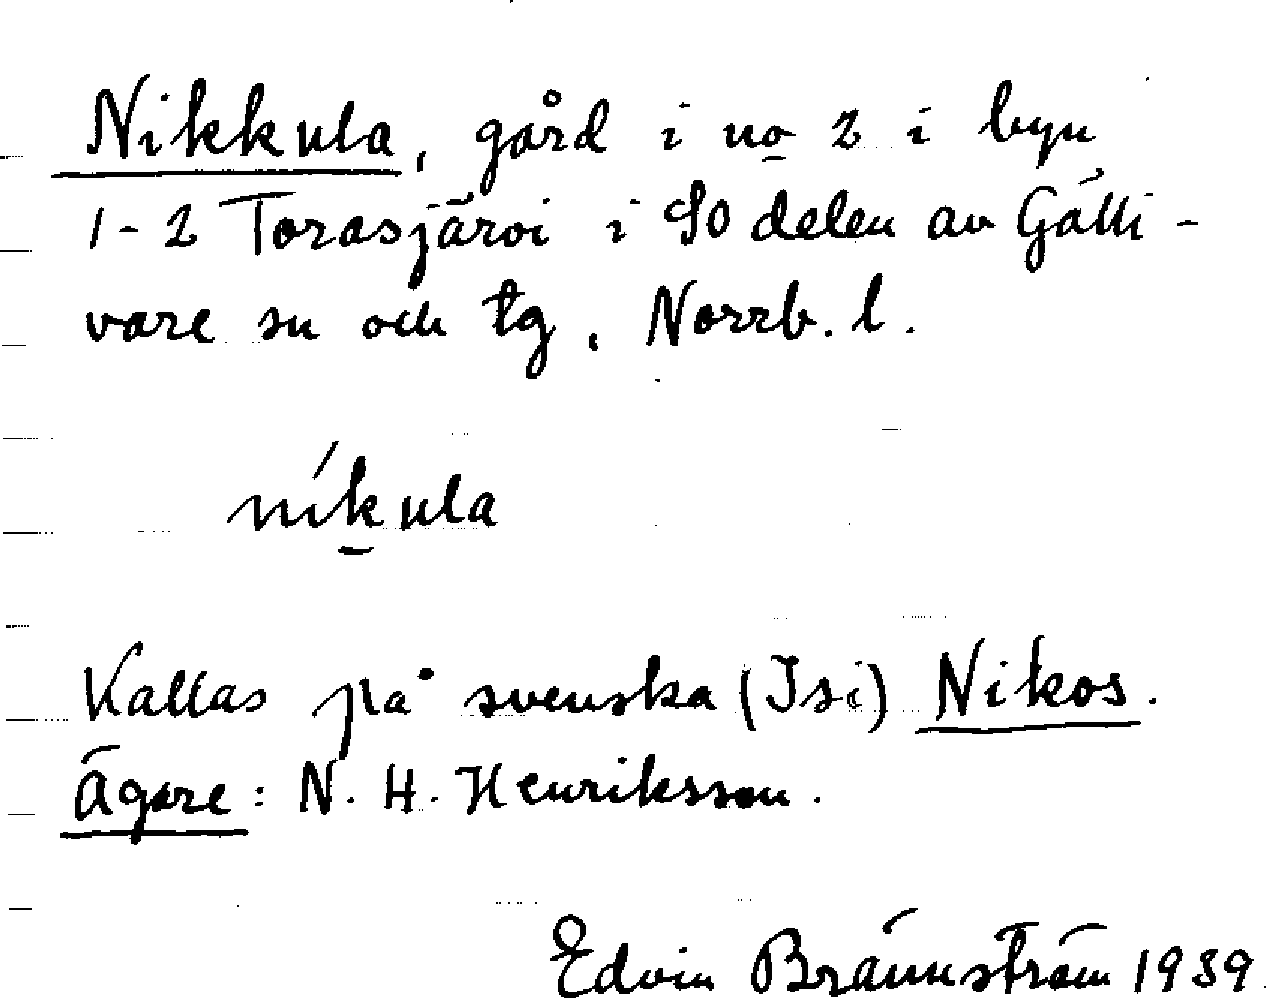 Nikkula, gård i no 2 i byn
1-2 Torasjärvi i SO delen av Gälli-
vare sn och tg, Norrb. l.
níkula
Kallas på svenska (Isi) Nikos.
Ägare: N. H. Henriksson.
Edvin Brännström 1939